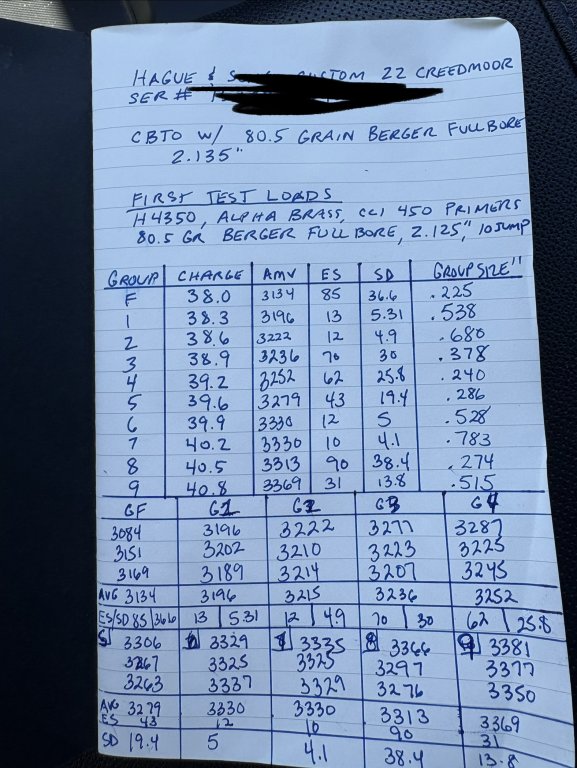 HAGUE & CUSTOM 22 CREEDMOOR
SER #
CBTO W/ 80.5 GRAIN BERGER FULLBORE
2.135"
FIRST TEST LOADS
H4350, ALPHA BRASS, CCI 450 PRIMERS
80.5 GR BERGER FULL BORE, 2.125", 10 JUMP
GROUP CHARGE AMV ES SD GROUP SIZE"
F 38.0 3134 85 36.6 .225
1 38.3 3196 13 5.31 .538
2 38.6 3222 12 4.9 .680
3 38.9 3236 70 30 .378
4 39.2 3252 62 25.8 .240
5 39.6 3279 43 19.4 .286
6 39.9 3330 12 5 .528
7 40.2 3330 10 4.1 .783
8 40.5 3313 90 38.4 .274
9 40.8 3369 31 13.8 .515
GF G1 G2 G3 G4
3084 3196 3222 3277 3287
3151 3202 3210 3223 3225
3169 3189 3214 3207 3245
AVG 3134 3196 3215 3236 3252
ES/SD 85 36.6 13 5.31 12 4.9 70 30 62 25.8
5 3306 6 3329 7 3335 8 3366 9 3381
3267 3325 3325 3297 3377
3263 3337 3329 3276 3350
AVG 3279 3330 3330 3313 3369
ES 43 12 10 90 31
SD 19.4 5 4.1 38.4 13.8